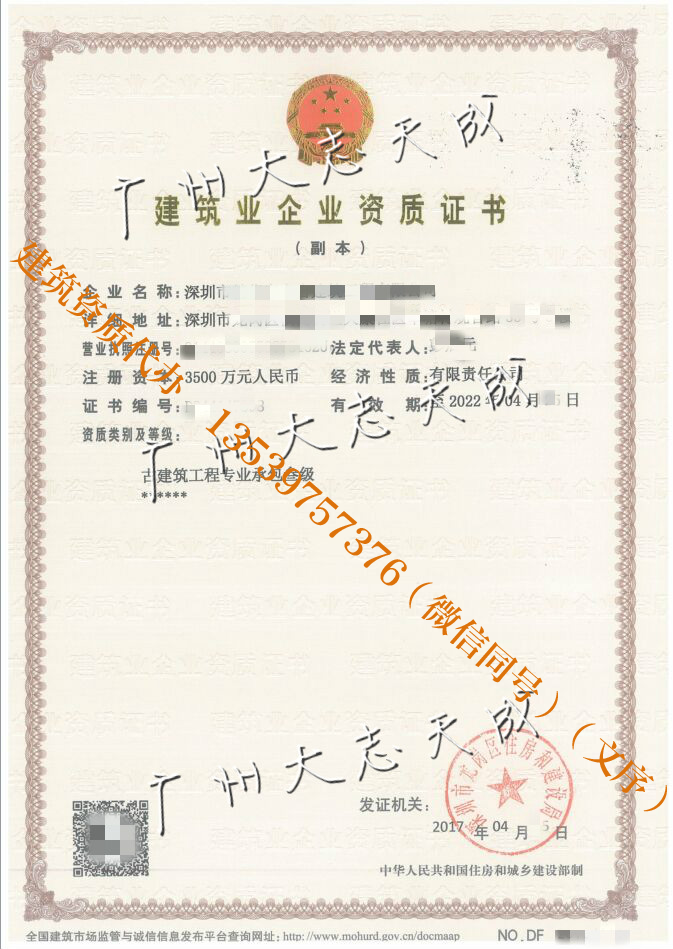 广州大志天成
建筑业企业资质证书
（副本）
建筑资质代办 13539757376（微信同号）（文序）
企业名称：深圳市
详细地址：深圳市龙岗区
营业执照注册号：
法定代表人：
注册资本：3500万元人民币
经济性质：有限责任公司
证书编号：
有效期：至2022年04月5日
资质类别及等级：
广州大志天成
古建筑工程专业承包叁级
******
广州大志天成
深圳市龙岗区住房和建设局
发证机关：
2017年04月5日
中华人民共和国住房和城乡建设部制
全国建筑市场监管与诚信信息发布平台查询网址：http://www.mohurd.gov.cn/docmaap
NO.DF